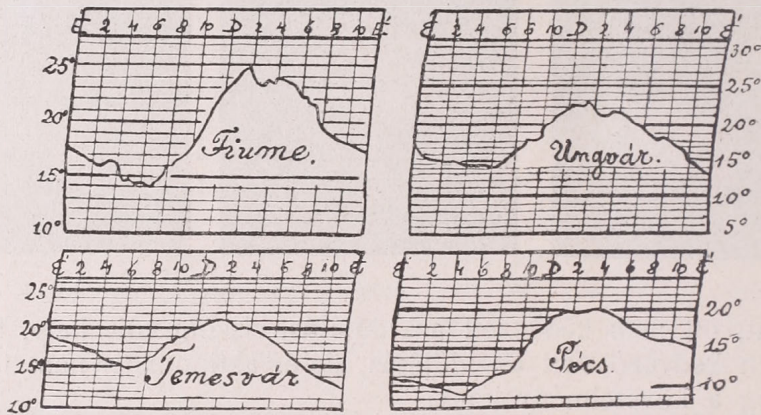 É 2 4 6 8 10 D 2 4 6 8 10 É
25°
20°
15°
10°
Fiume.
É 2 4 6 8 10 D 2 4 6 8 10 É
30°
25°
20°
15°
10°
5°
Ungvár.
É 2 4 6 8 10 D 2 4 6 8 10 É
25°
20°
15°
10°
Temesvár
É 2 4 6 8 10 D 2 4 6 8 10 É
20°
15°
10°
Pécs.